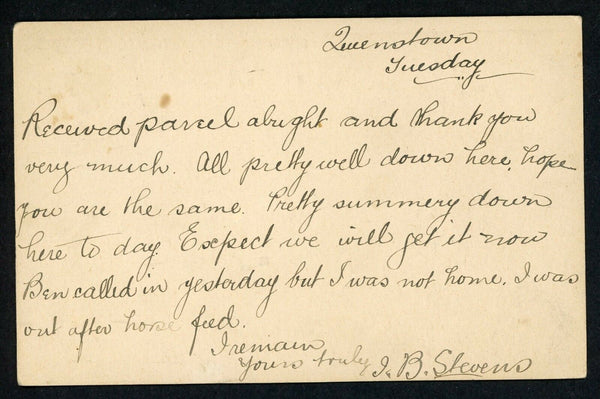 Queenstown
Tuesday
Received parcel alright and thank you
very much. All pretty well down here, hope
you are the same. Pretty summery down
here to day. Expect we will get it now
Ben called in yesterday but I was not home. I was
out after horse feed.
I remain
Yours truly J. B. Stevens